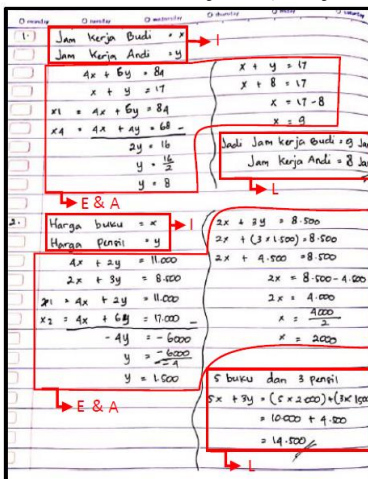 O monday O tuesday O wednesday O thursday O friday O saturday
1. Jam Kerja Budi = x
Jam Kerja Andi = y
I
4x + 6y = 84
x + y = 17
x1 = 4x + 6y = 84
x4 = 4x + 4y = 68 -
2y = 16
y = 16/2
y = 8
E & A
x + y = 17
x + 8 = 17
x = 17 - 8
x = 9
Jadi Jam kerja Budi = 9 Jam
Jam Kerja Andi = 8 Jam
L
2. Harga buku = x
Harga Pensil = y
I
4x + 2y = 11.000
2x + 3y = 8.500
x1 = 4x + 2y = 11.000
x2 = 4x + 6y = 17.000 -
-4y = -6000
y = -6000/-4
y = 1.500
E & A
2x + 3y = 8.500
2x + (3 x 1.500) = 8.500
2x + 4.500 = 8.500
2x = 8.500 - 4.500
2x = 4.000
x = 4000/2
x = 2000
5 buku dan 3 pensil
5x + 3y = (5 x 2.000) + (3x 1500
= 10.000 + 4.500
= 14.500
L